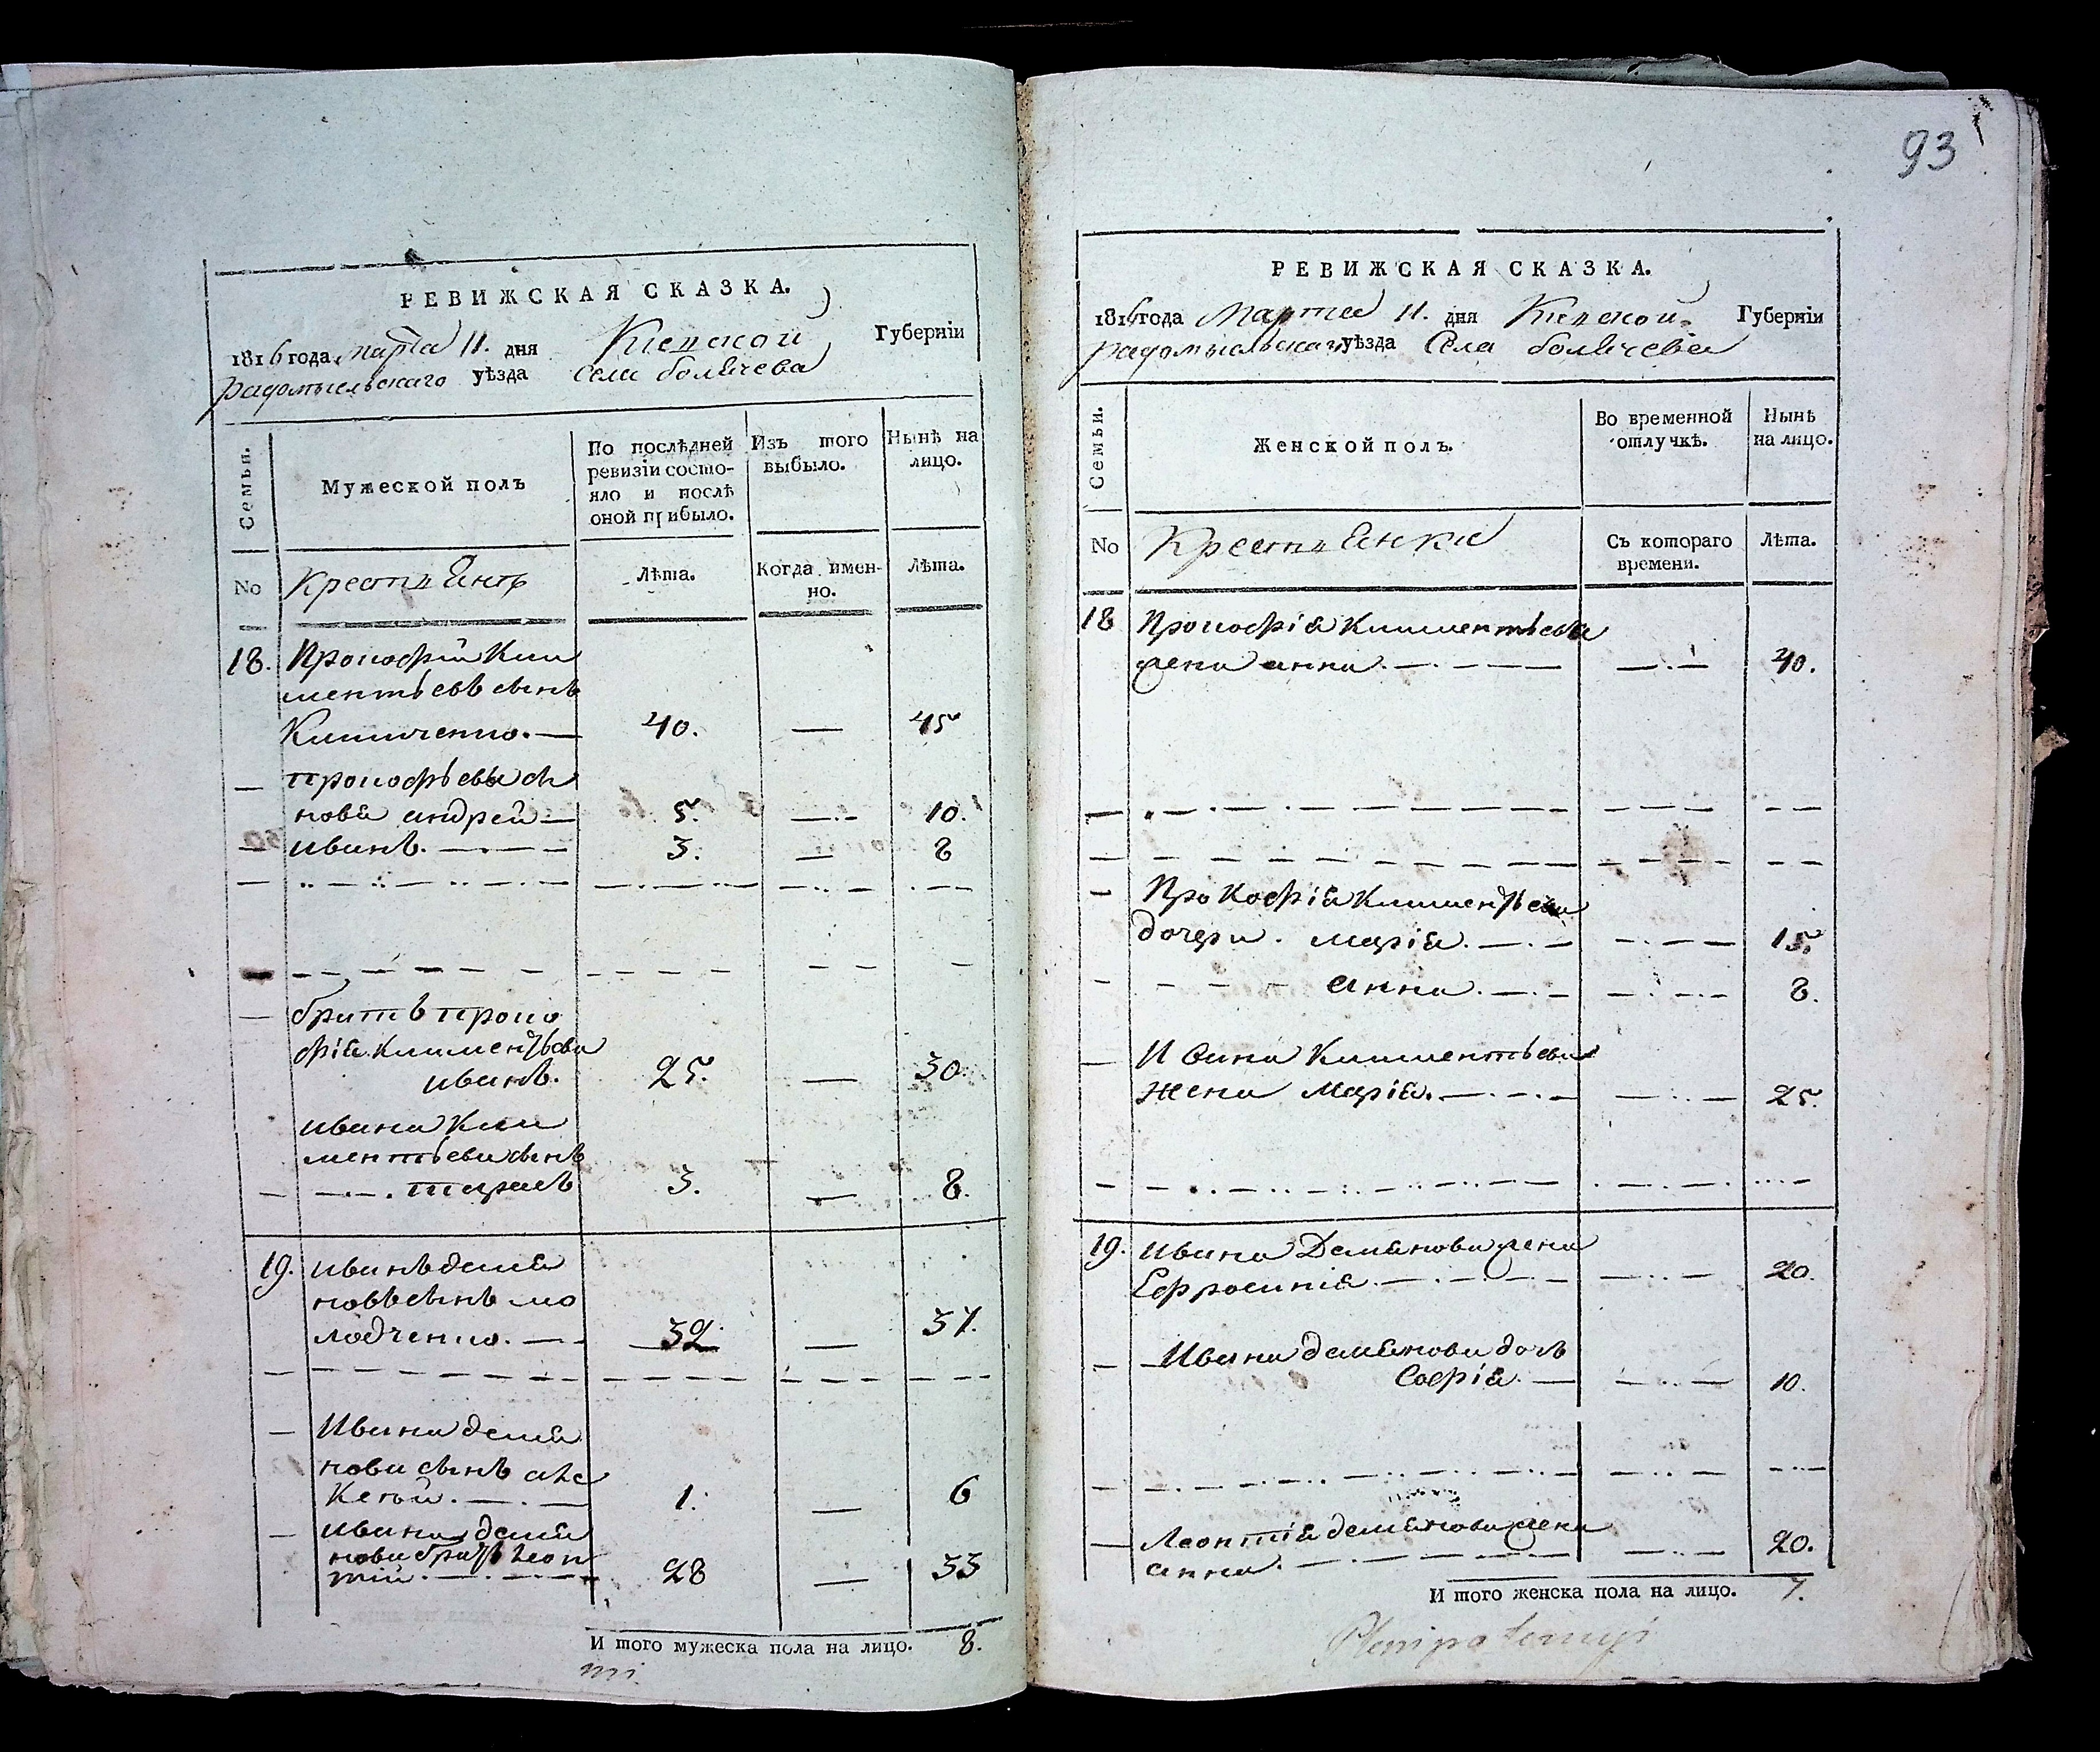 РЕВИЖСКАЯ СКАЗКА.
1816 года марта 11. дня Кіевской Губерніи
радомысльскаго уѣзда Села болячева
Семьи.
Мужеской полъ
По послѣдней ревизіи состо-
яло и послѣ
оной прибыло.
Изъ того
выбыло.
Нынѣ на
лицо.
No
Крестьянъ
Лѣта.
Когда имен-
но.
Лѣта.
18. Прокофій Кли
ментьевъ сынъ
Климченко. — 40. — 45
— прокофьевы сы
новя андрей — 5. — 10.
— иванъ. — 3. — 8
— братъ проко
фія климентьева
иванъ. 25. — 30
ивана Кли
ментьева сынъ
— тарасъ 3. — 8.
19. иванъ демя
новъ сынъ мо
лодченко. — 32. — 37.
— Ивана демя
нова сынъ але
ксѣй. — 1. — 6
— ивана демя
нова братъ леон
тій. — 28 — 33
И того мужеска пола на лицо. 8.
93
РЕВИЖСКАЯ СКАЗКА.
1816 года Марта 11. дня Кіевской Губерніи
радомысльскаго уѣзда Села болячева
Семьи.
Женской полъ.
Во временной
отлучкѣ.
Нынѣ
на лицо.
No
Крестьянки
Съ котораго
времени.
Лѣта.
18 Прокофія Климентьева
жена анна. — 40.
— Прокофія Климентьева
дочери. марія. — 15.
анна. — 8.
— Ивана Климентьева
жена Марія. — 25.
19. Ивана Демянова жена
Ефросинія. — 20.
— Ивана демянова дочь
Софія. — 10.
— Леонтія демянова жена
анна. — 20.
И того женска пола на лицо. 7.